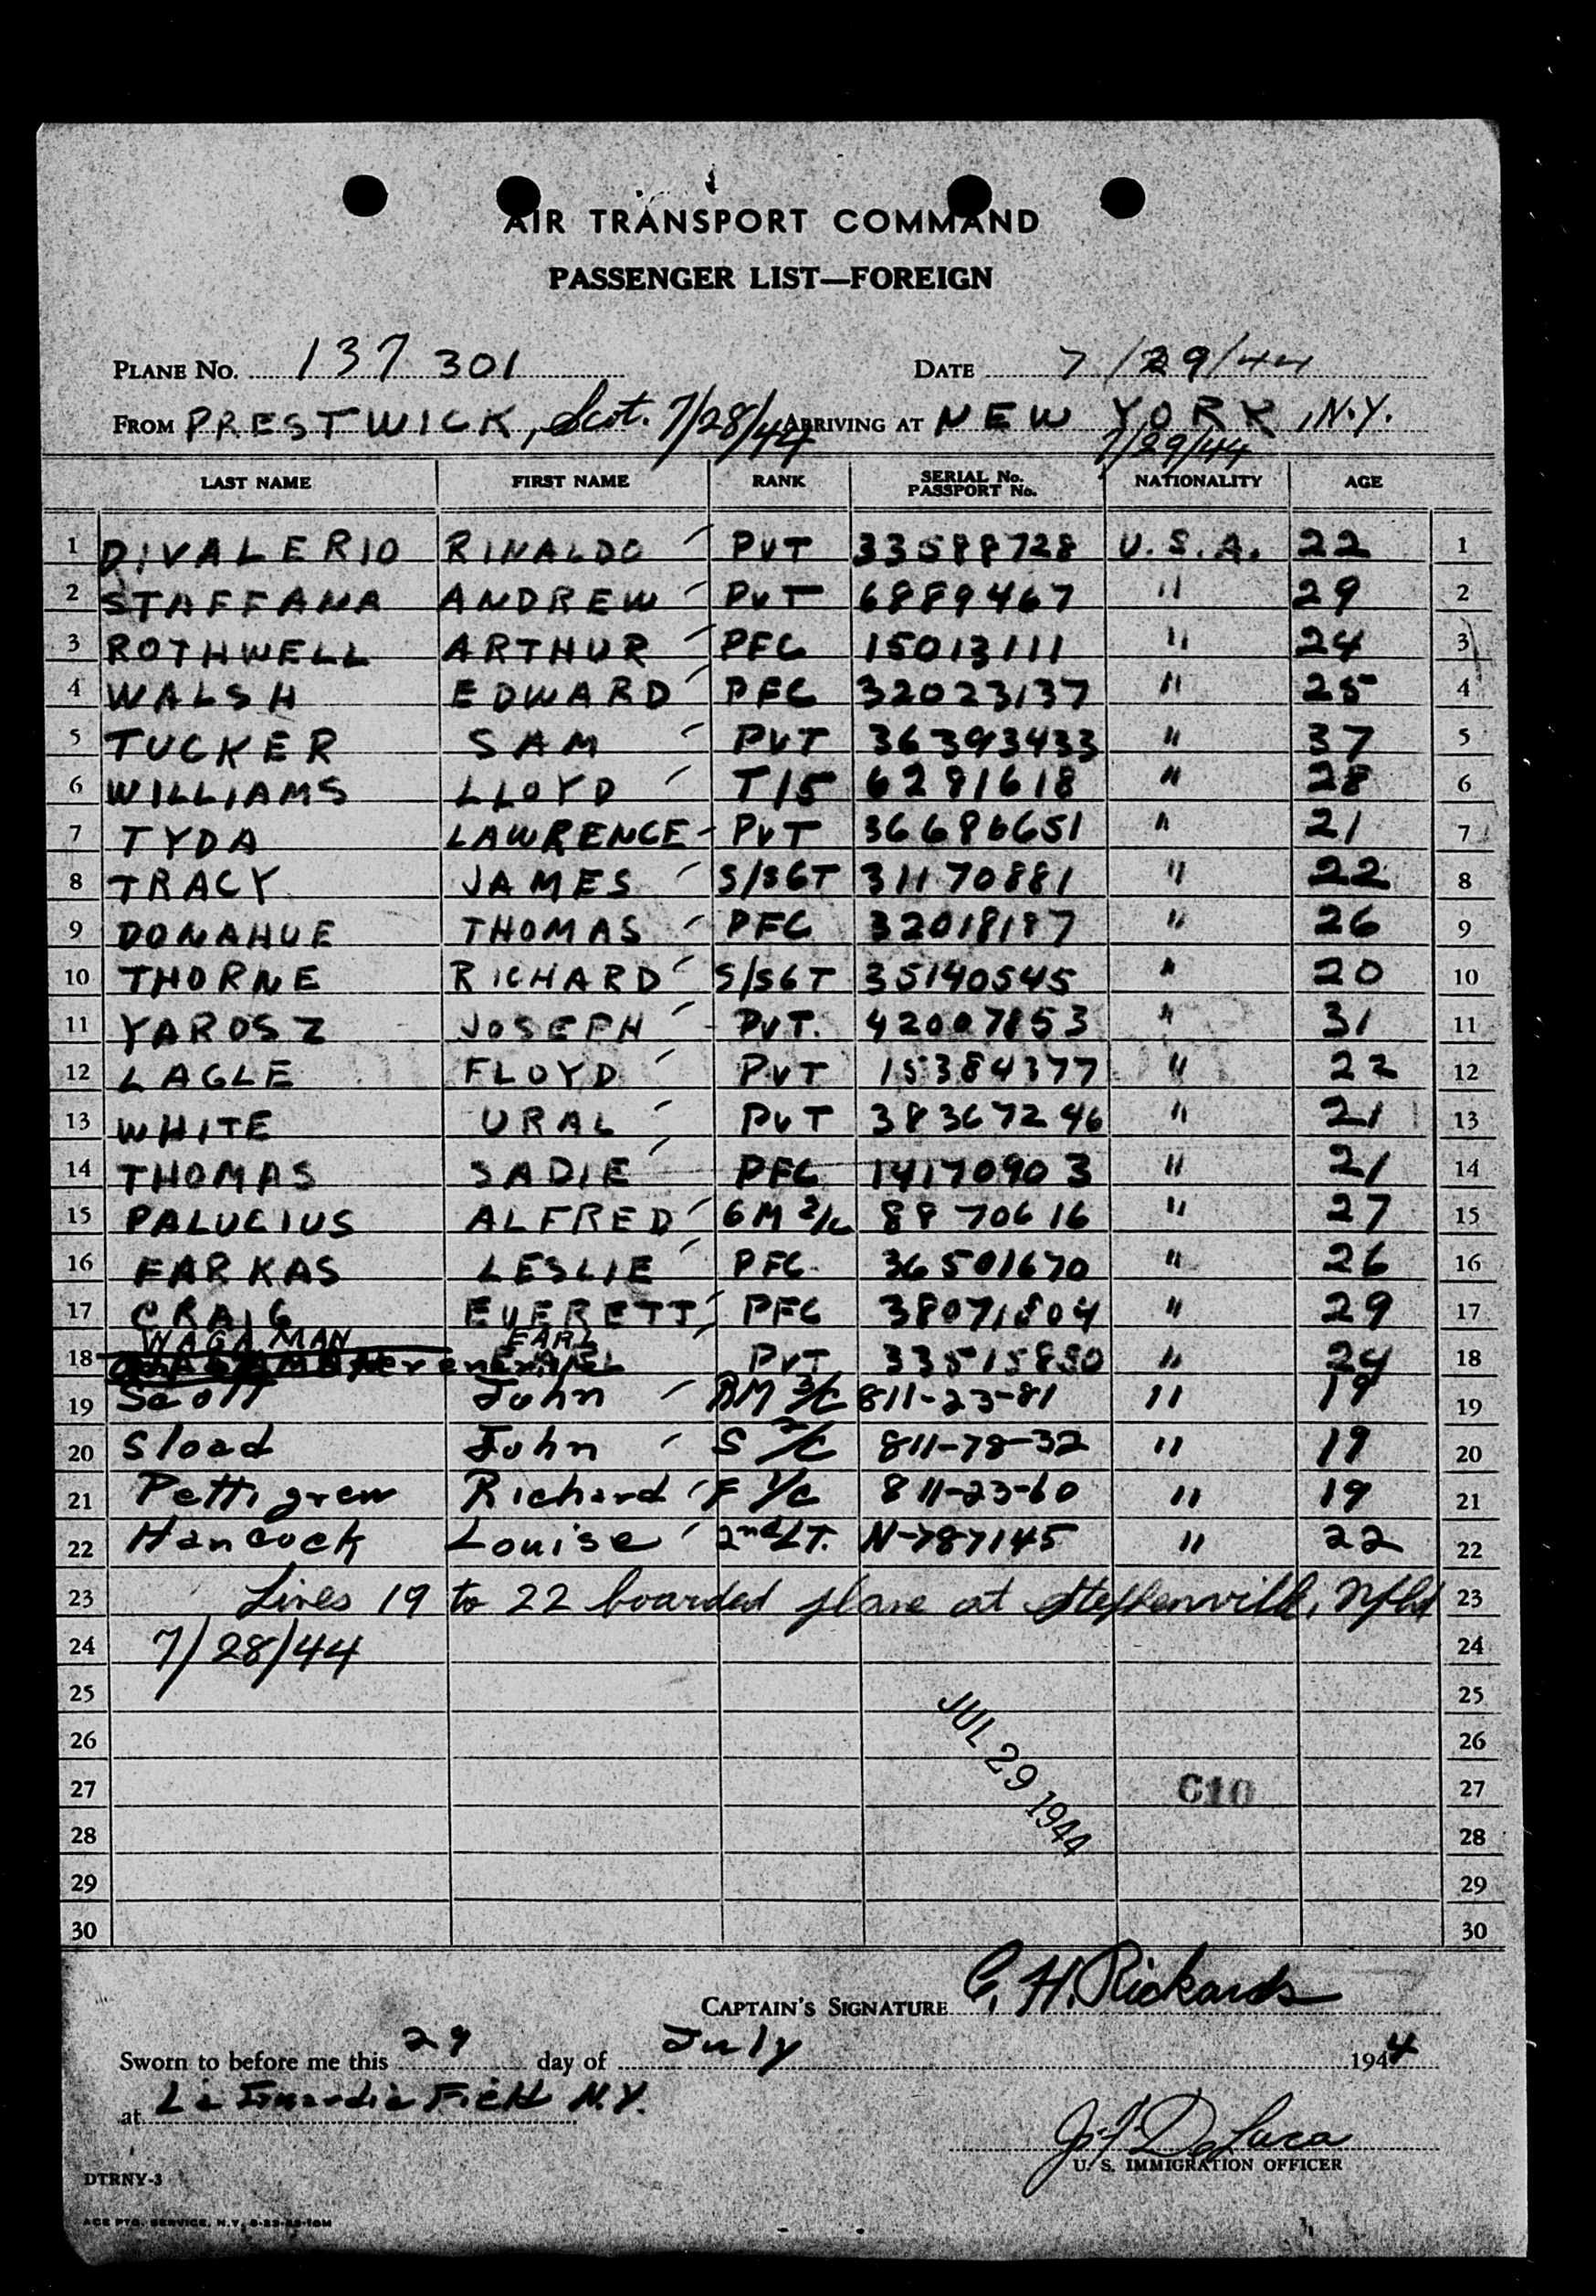 AIR TRANSPORT COMMAND
PASSENGER LIST—FOREIGN
PLANE No. 137 301 DATE 7/29/44
FROM PRESTWICK, Scot. 7/28/44 ARRIVING AT NEW YORK, N.Y.
7/29/44
LAST NAME FIRST NAME RANK SERIAL No. PASSPORT No. NATIONALITY AGE
1 DIVALERIO RINALDO PVT 33588728 U.S.A. 22 1
2 STAFFANA ANDREW PVT 6889467 " 29 2
3 ROTHWELL ARTHUR PFC 15013111 " 24 3
4 WALSH EDWARD PFC 32023137 " 25 4
5 TUCKER SAM PVT 36393433 " 37 5
6 WILLIAMS LLOYD T/5 6281618 " 28 6
7 TYDA LAWRENCE PVT 36686651 " 21 7
8 TRACY JAMES S/SGT 31170881 " 22 8
9 DONAHUE THOMAS PFC 32018187 " 26 9
10 THORNE RICHARD S/SGT 35140545 " 20 10
11 YAROSZ JOSEPH PVT. 42007853 " 31 11
12 LAGLE FLOYD PVT 15384377 " 22 12
13 WHITE URAL PVT 38367246 " 21 13
14 THOMAS SADIE PFC 14170903 " 21 14
15 PALUCIUS ALFRED GM 2/c 8870616 " 27 15
16 FARKAS LESLIE PFC 36501670 " 26 16
17 CRAIG EVERETT PFC 38071804 " 29 17
18 WAGAMAN EARL PVT 33515880 " 24 18
19 Scott John RM 3/C 811-23-81 " 19 19
20 Sload John S 2/C 811-78-32 " 19 20
21 Pettigrew Richard F 1/c 811-23-60 " 19 21
22 Hancock Louise 2nd LT. N-787145 " 22 22
23 Lines 19 to 22 boarded plane at Stephenville, Nfld 23
24 7/28/44 24
25 25
26 26
27 27
28 28
29 29
30 30
JUL 29 1944
C10
CAPTAIN'S SIGNATURE C. H. Rickards
Sworn to before me this 29 day of July 1944
at La Guardia Field N.Y.
J. F. DeLuca
U. S. IMMIGRATION OFFICER
DTRNY-3
ACE PTG. SERVICE, N.Y.